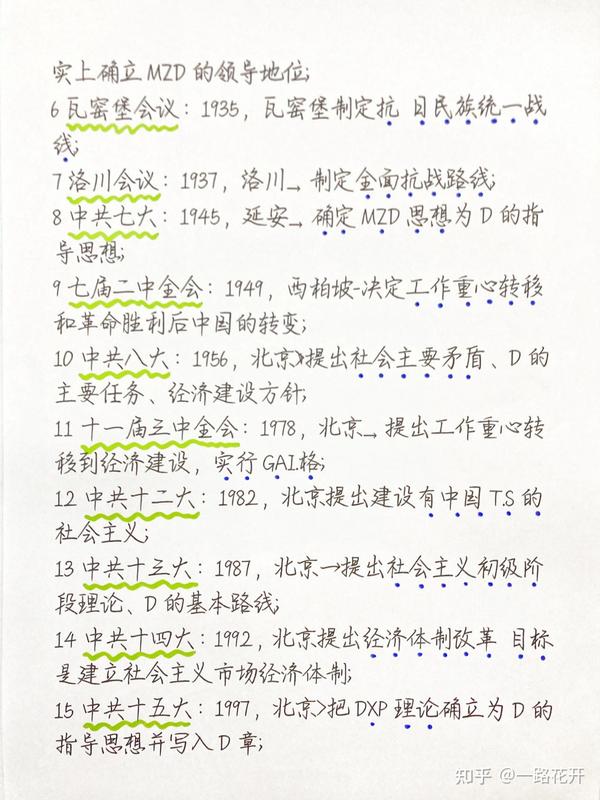 实上确立MZD的领导地位;
6 瓦窑堡会议: 1935, 瓦窑堡制定抗 日民族统一战
线;
7 洛川会议: 1937, 洛川→ 制定全面抗战路线;
8 中共七大: 1945, 延安→ 确定MZD思想为D的指
导思想;
9 七届二中全会: 1949, 西柏坡-决定工作重心转移
和革命胜利后中国的转变;
10 中共八大: 1956, 北京》提出社会主要矛盾、D的
主要任务、经济建设方针;
11 十一届三中全会: 1978, 北京→ 提出工作重心转
移到经济建设, 实行GAI.格;
12 中共十二大: 1982, 北京提出建设有中国T.S的
社会主义;
13 中共十三大: 1987, 北京→提出社会主义初级阶
段理论、D的基本路线;
14 中共十四大: 1992, 北京提出经济体制改革 目标
是建立社会主义市场经济体制;
15 中共十五大: 1997, 北京>把DXP理论确立为D的
指导思想并写入D章;
知乎 @一路花开